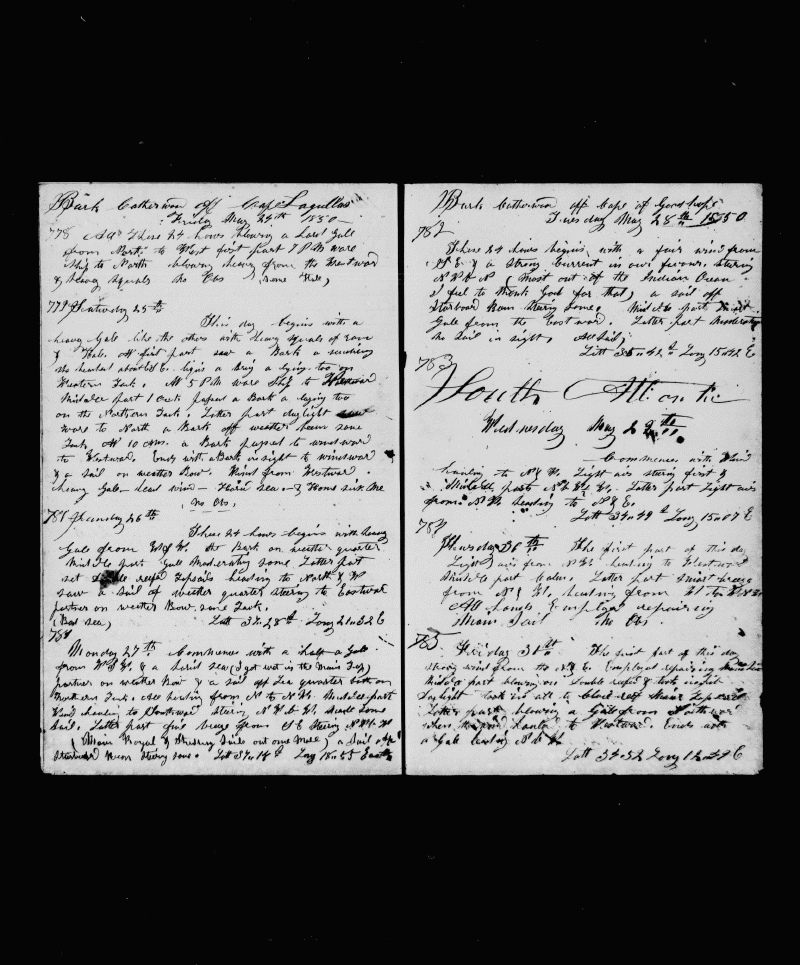 Bark Catherwood off Cape Lagullas
Friday May 24th 1850
778 These 24 hours blowing a hard Gale
from North to West first part 7 P M ware
Ship to North heavy from the Westward
& heavy squals No Obs (some Hail)
779 Saturday 25th
This day begins with a
heavy Gale like the others with heavy squals of rain
& Hale. At first part saw a Bark a scudding
she hauled about 6. being a Brig a lying too on
Western Tack. At 5 P M ware Ship to Westward
Middle part 1 Oclk passed a Bark a lying too
on the Northern Tack. Latter part daylight
ware to North a Bark off weather beam same
Tack, At 10 Am. a Bark passed to windward
to Westward. Ends with a Bark in sight to windward
& a sail on weather Bow. Wind from Westward.
heavy Gale head wind Hard sea & Home sick Me
No Obs,
781 Sunday 26th
These 24 hours begins with heavy
Gale from W S W. the Bark on weather quarter
Middle part Gale Moderating some Latter part
set reefd Topsails heading to North & W
saw a sail of weather quarter steering to Eastward
partner on weather Bow same Tack.
(Bad sea) Latt 37 28 Long 21 32 E
781
Monday 27th Commence with a half a Gale
from & a hard sea (I got wet in the Main Top)
partner on weather Bow & a sail off Lea quarter both on
Northern Tack. All hauling from N to N W. Middle part
Wind hauling to Southward stering N W b W. Made some
Sail. Latter part fine breeze from S E Stering N W b W
(Main Royal & Studding Sails out once more) a Sail off
Starboard Beam Stering same. Latt Long 18 55 East
Bark Catherwood off Cape of Good hope
Tuesday May 28th 1850
782
These 24 hours begins with a fair wind from
S E & a strong Current in our favour. stering
N W b N (most out of the Indian Ocean
I feel to thank God for that) a sail off
Starboard Beam stering same. Middle part
Gale from the Eastward. Latter part Moderate
No Sail in sight, All Sail,
Latt 35 42 Long 15 42 E
783
South Atlantic
Wednesday May 29th
Commences with Wind
hauling to N & W. Light airs stering first &
Middle part N W b W. Latter part Light airs
from N W heading to N & E.
Latt 34 49 Long 15 07 E
784
Thursday 30th The first part of this day
Light airs from N W heading to Westward
Middle part Calm. Latter part smart breeze
from N & W, heading from
All hands Employd repairing
Main Sail No Obs.
785
Friday 31st The first part of this day
strong wind from the N & E. Employed repairing Main Sail
Middle part blowing on. Double reefd & took in Jib
Daylight took in all to Close reef Main Topsail
Latter part blowing a Gale from Northward
when the wind hauld to Westward. Ends with
a Gale heading N b W
Latt 34 32 Long E